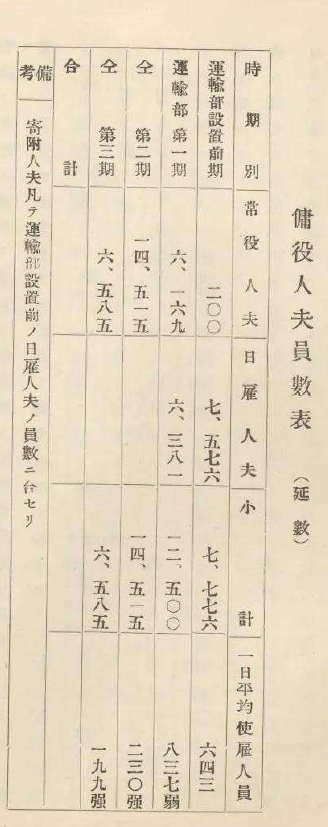 傭役人夫員數表 （延數）
時期別 常役人夫 日雇人夫 小計 一日平均使雇人員
運輸部設置前期 二〇〇 七、五七六 七、七七六 六四三
運輸部第一期 六、一六九 六、三八一 一二、五〇〇 八三七弱
仝 第二期 一四、五一五 一四、五一五 二三〇强
仝 第三期 六、五八五 六、五八五 一九九强
合計
備考 寄附人夫凡テ運輸部設置前ノ日雇人夫ノ員數ニ合セリ